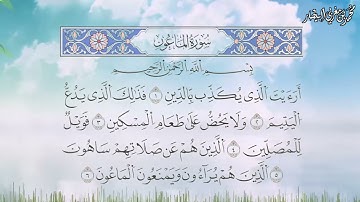 سُورَةُ المَاعُونِ
بِسْمِ اللَّهِ الرَّحْمَٰنِ الرَّحِيمِ
أَرَءَيْتَ الَّذِي يُكَذِّبُ بِالدِّينِ ١ فَذَٰلِكَ الَّذِي يَدُعُّ
الْيَتِيمَ ٢ وَلَا يَحُضُّ عَلَىٰ طَعَامِ الْمِسْكِينِ ٣ فَوَيْلٌ
لِّلْمُصَلِّينَ ٤ الَّذِينَ هُمْ عَن صَلَاتِهِمْ سَاهُونَ
٥ الَّذِينَ هُمْ يُرَاءُونَ ٦ وَيَمْنَعُونَ الْمَاعُونَ ٧